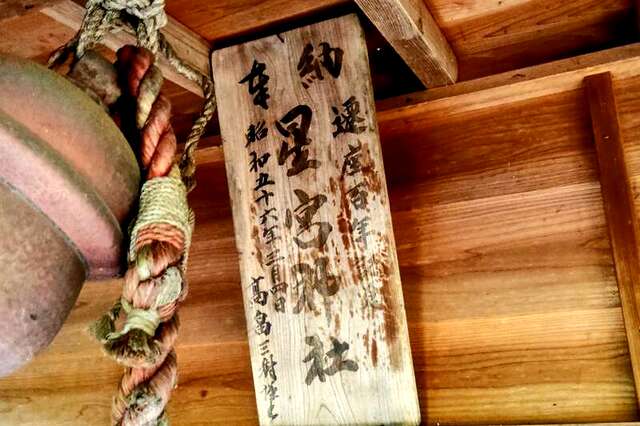 奉納
遷座百年記念
星宮神社
昭和五十六年三月四日
高畠三財